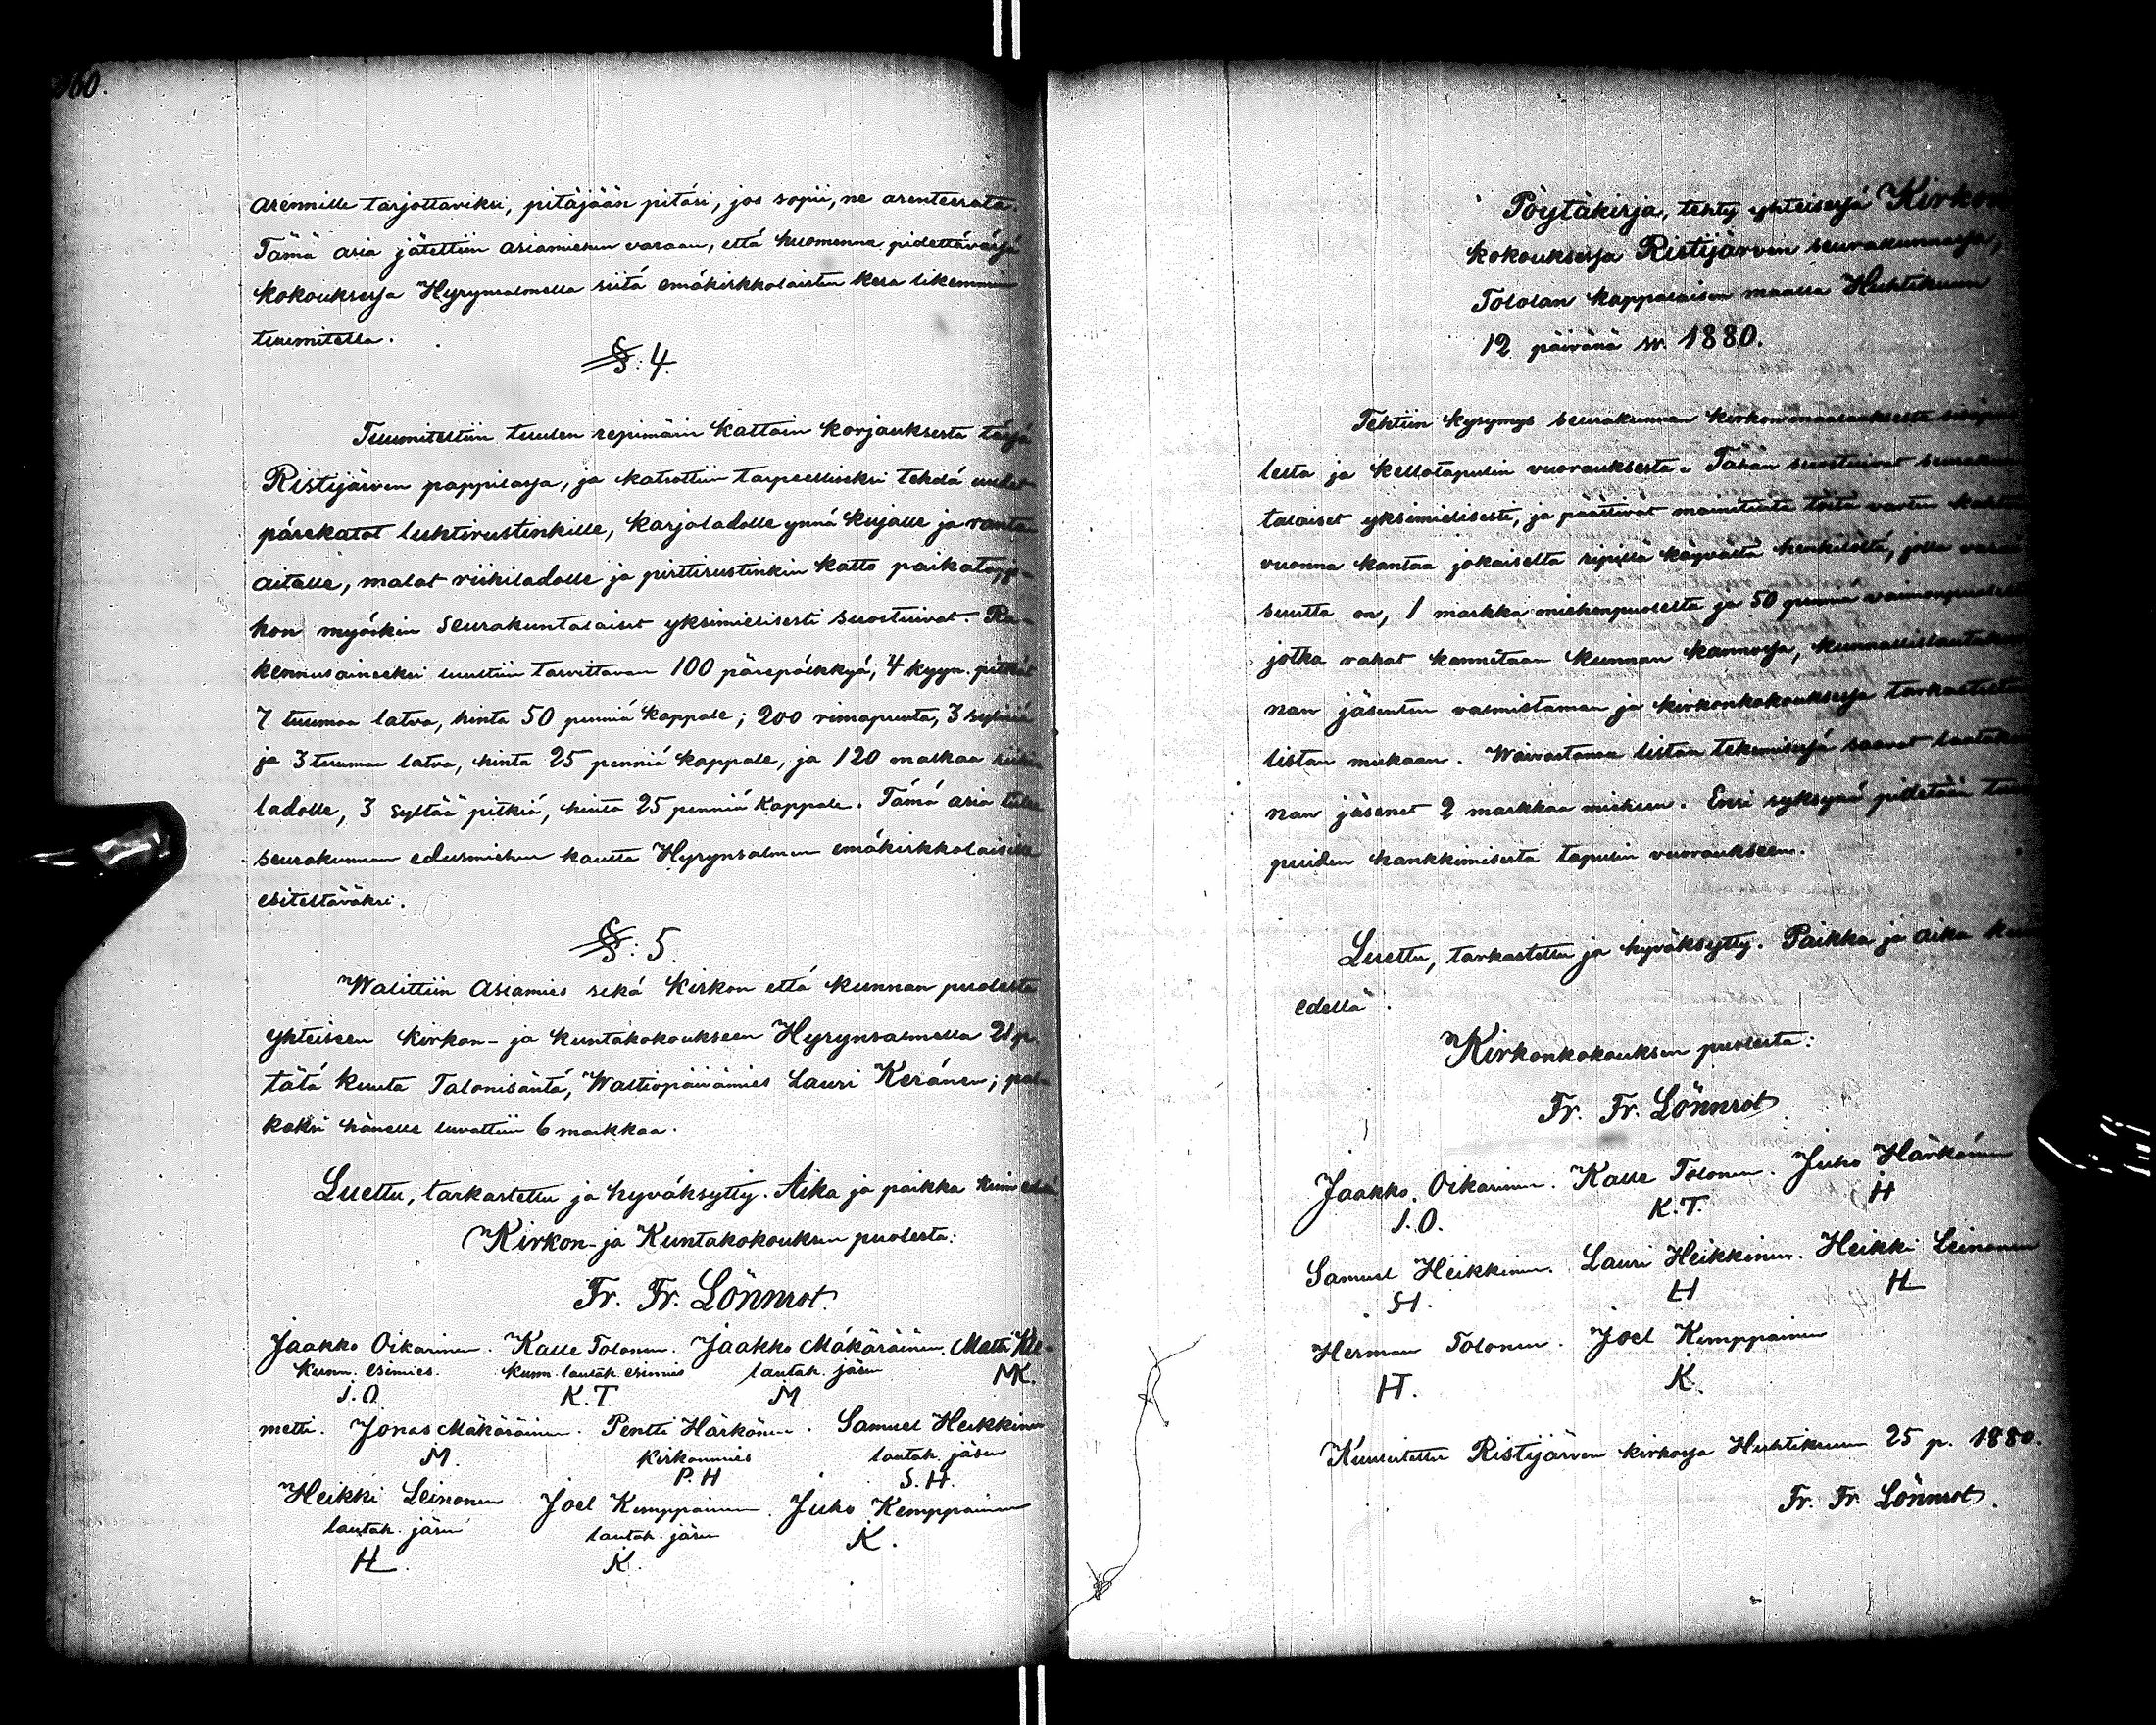 260.
arennille tarjottaviksi, pitäjään pitäisi, jos sopii, ne arenteerata.
Tämä asia jätettiin asiamiehen varaan, että huomenna pidettävässä
kokouksessa Hyrynsalmella siitä emäkirkkolaisten kesä likemmin
tuumitella.
§: 4.
Tuumiteltiin tuulen repimäin kattoin korjauksesta tässä
Ristijärven pappilassa, ja katsottiin tarpeelliseksi tehdä uudet
pärekatot luhtirustinkille, karjaladolle ynnä kujalle ja ranta
aitalle, malat riihiladolle ja pirttirustinkin katto paikata,
hon myöskin seurakuntalaiset yksimielisesti suostuivat. Ra-
kennusaineeksi luultiin tarvittavan 100 pärepölkkyä, 4 kyyn. pitkät
7 tuumaa latva, hinta 50 penniä kappale; 200 rimapuuta, 3 sylisiä
ja 3 tuuman latva, hinta 25 penniä kappale, ja 120 malkaa riihi
ladolle, 3 syltää pitkiä, hinta 25 penniä kappale. Tämä asia tulee
seurakunnan edusmiehen kautta Hyrynsalmen emäkirkkolaisille
esiteltäväksi.
§: 5.
Walittiin asiamies sekä kirkon että kunnan puolesta
yhteiseen kirkon- ja kuntakokoukseen Hyrynsalmella 21 p.
tätä kuuta Talonisäntä, Waltiopäivämies Lauri Keränen; pal-
kaksi hänelle luvattiin 6 markkaa.
Luettu, tarkastettu ja hyväksytty. Aika ja paikka kuin edellä
Kirkon- ja Kuntakokouksen puolesta:
Fr. Fr. Lönnrot.
Jaakko Oikarinen. Kalle Tolonen. Jaakko Mäkäräinen. Matti Kle-
kunn. esimies. kunn. lautak. esimies lautak. jäsen MK.
J. O. K. T. M.
metti. Jonas Mäkäräinen. Pentti Härkönen. Samuel Heikkinen
M. Kirkonmies lautak. jäsen
P. H S. H.
Heikki Leinonen. Joel Kemppainen. Juho Kemppainen
lautak. jäsen lautak. jäsen K.
HL. K.
Pöytäkirja, tehty yhteisessä Kirkon
kokouksessa Ristijärven seurakunnassa,
Tololan kappalaisen maalla Huhtikuun
12 päivänä w. 1880.
Tehtiin kysymys seurakunnan kirkon maalauksesta sisäpuo
lelta ja kellotapulin vuorauksesta. Tähän suostuivat seurakun
talaiset yksimielisesti, ja päättivät mainituita töitä varten kahtena
vuonna kantaa jokaiselta ripillä käyvältä henkilöltä, jolla varai
suutta on, 1 markka miehenpuolelta ja 50 penniä vaimonpuolelta
jotka rahat kannetaan kunnan kannossa, kunnallislautakun
nan jäsenten valmistaman ja kirkonkokouksessa tarkastetun
listan mukaan. Waivastansa listan tekemisessä saavat lautakun
nan jäsenet 2 markkaa mieheen. Ensi syksynä pidetään
puiden hankkimisesta tapulin vuoraukseen.
Luettu, tarkastettu ja hyväksytty. Paikka ja aika kuin
edellä.
Kirkonkokouksen puolesta:
Fr. Fr. Lönnrot.
Jaakko Oikarinen. Kalle Tolonen. Juho Härkönen
J. O. K. T. H
Samuel Heikkinen. Lauri Heikkinen. Heikki Leinonen
SH. LH HL
Herman Tolonen. Joel Kemppainen
HT. K.
Kuulutettu Ristijärven kirkossa Huhtikuun 25 p. 1880.
Fr. Fr. Lönnrot.